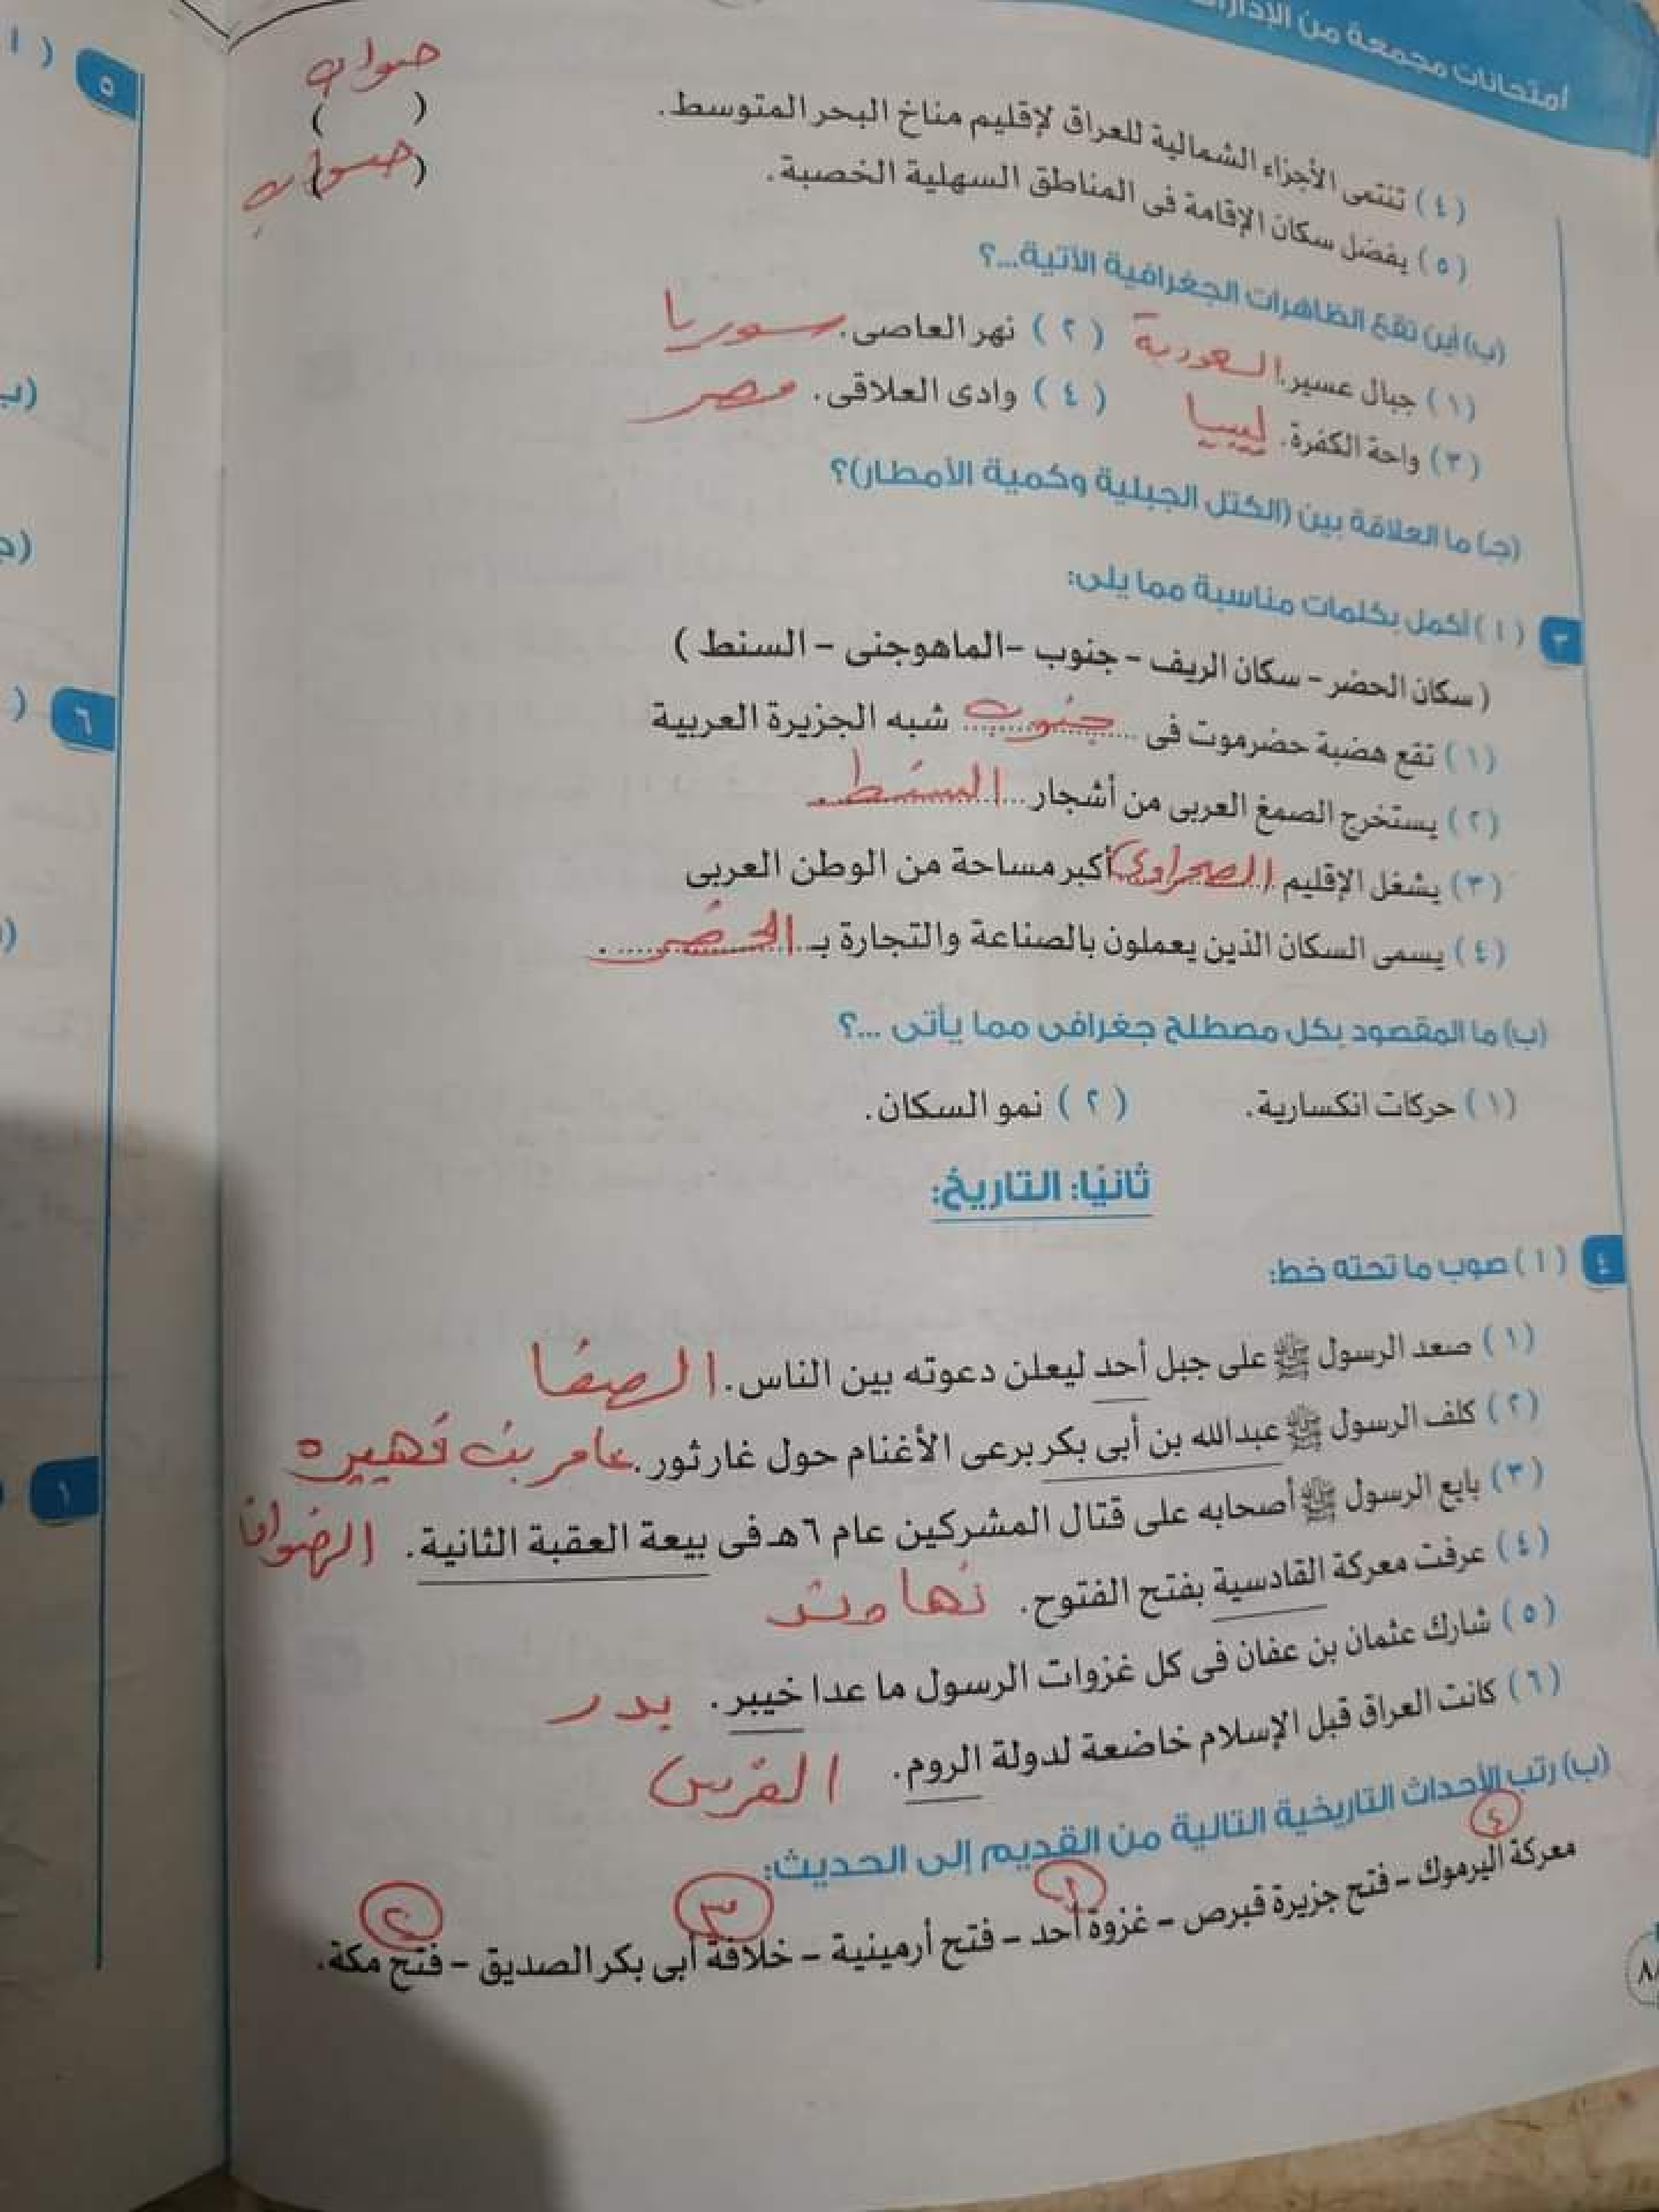 امتحانات مجمعة من
( ٤ ) تنتمى الأجزاء الشمالية للعراق لإقليم مناخ البحر المتوسط. ( ) صواب
( ٥ ) يفضل سكان الإقامة فى المناطق السهلية الخصبة. ( صواب )
(ب) أين تقع الظاهرات الجغرافية الآتية...؟
( ١ ) جبال عسير. السعودية ( ٢ ) نهر العاصى. سوريا
( ٣ ) واحة الكفرة. ليبيا ( ٤ ) وادى العلاقى. مصر
(جـ) ما العلاقة بين (الكتل الجبلية وكمية الأمطار)؟
٣ ( ا ) أكمل بكلمات مناسبة مما يلى:
( سكان الحضر - سكان الريف - جنوب - الماهوجنى - السنط )
( ١ ) تقع هضبة حضرموت فى جنوب شبه الجزيرة العربية
( ٢ ) يستخرج الصمغ العربى من أشجار السنط
( ٣ ) يشغل الإقليم الصحراوى أكبر مساحة من الوطن العربى
( ٤ ) يسمى السكان الذين يعملون بالصناعة والتجارة بـ الحضر
(ب) ما المقصود بكل مصطلح جغرافى مما يأتى ...؟
( ١ ) حركات انكسارية. ( ٢ ) نمو السكان.
ثانيًا: التاريخ:
٤ ( ا ) صوب ما تحته خط:
( ١ ) صعد الرسول ﷺ على جبل أحد ليعلن دعوته بين الناس. الصفا
( ٢ ) كلف الرسول ﷺ عبدالله بن أبى بكر برعى الأغنام حول غار ثور. عامر بن فهيره
( ٣ ) بايع الرسول ﷺ أصحابه على قتال المشركين عام ٦هـ فى بيعة العقبة الثانية. الرضوان
( ٤ ) عرفت معركة القادسية بفتح الفتوح. نهاوند
( ٥ ) شارك عثمان بن عفان فى كل غزوات الرسول ما عدا خيبر. بدر
( ٦ ) كانت العراق قبل الإسلام خاضعة لدولة الروم. الفرس
(ب) رتب الأحداث التاريخية التالية من القديم إلى الحديث:
٤ ١ ٣ ٢
معركة اليرموك - فتح جزيرة قبرص - غزوة أحد - فتح أرمينية - خلافة أبى بكر الصديق - فتح مكة.
٥
٦